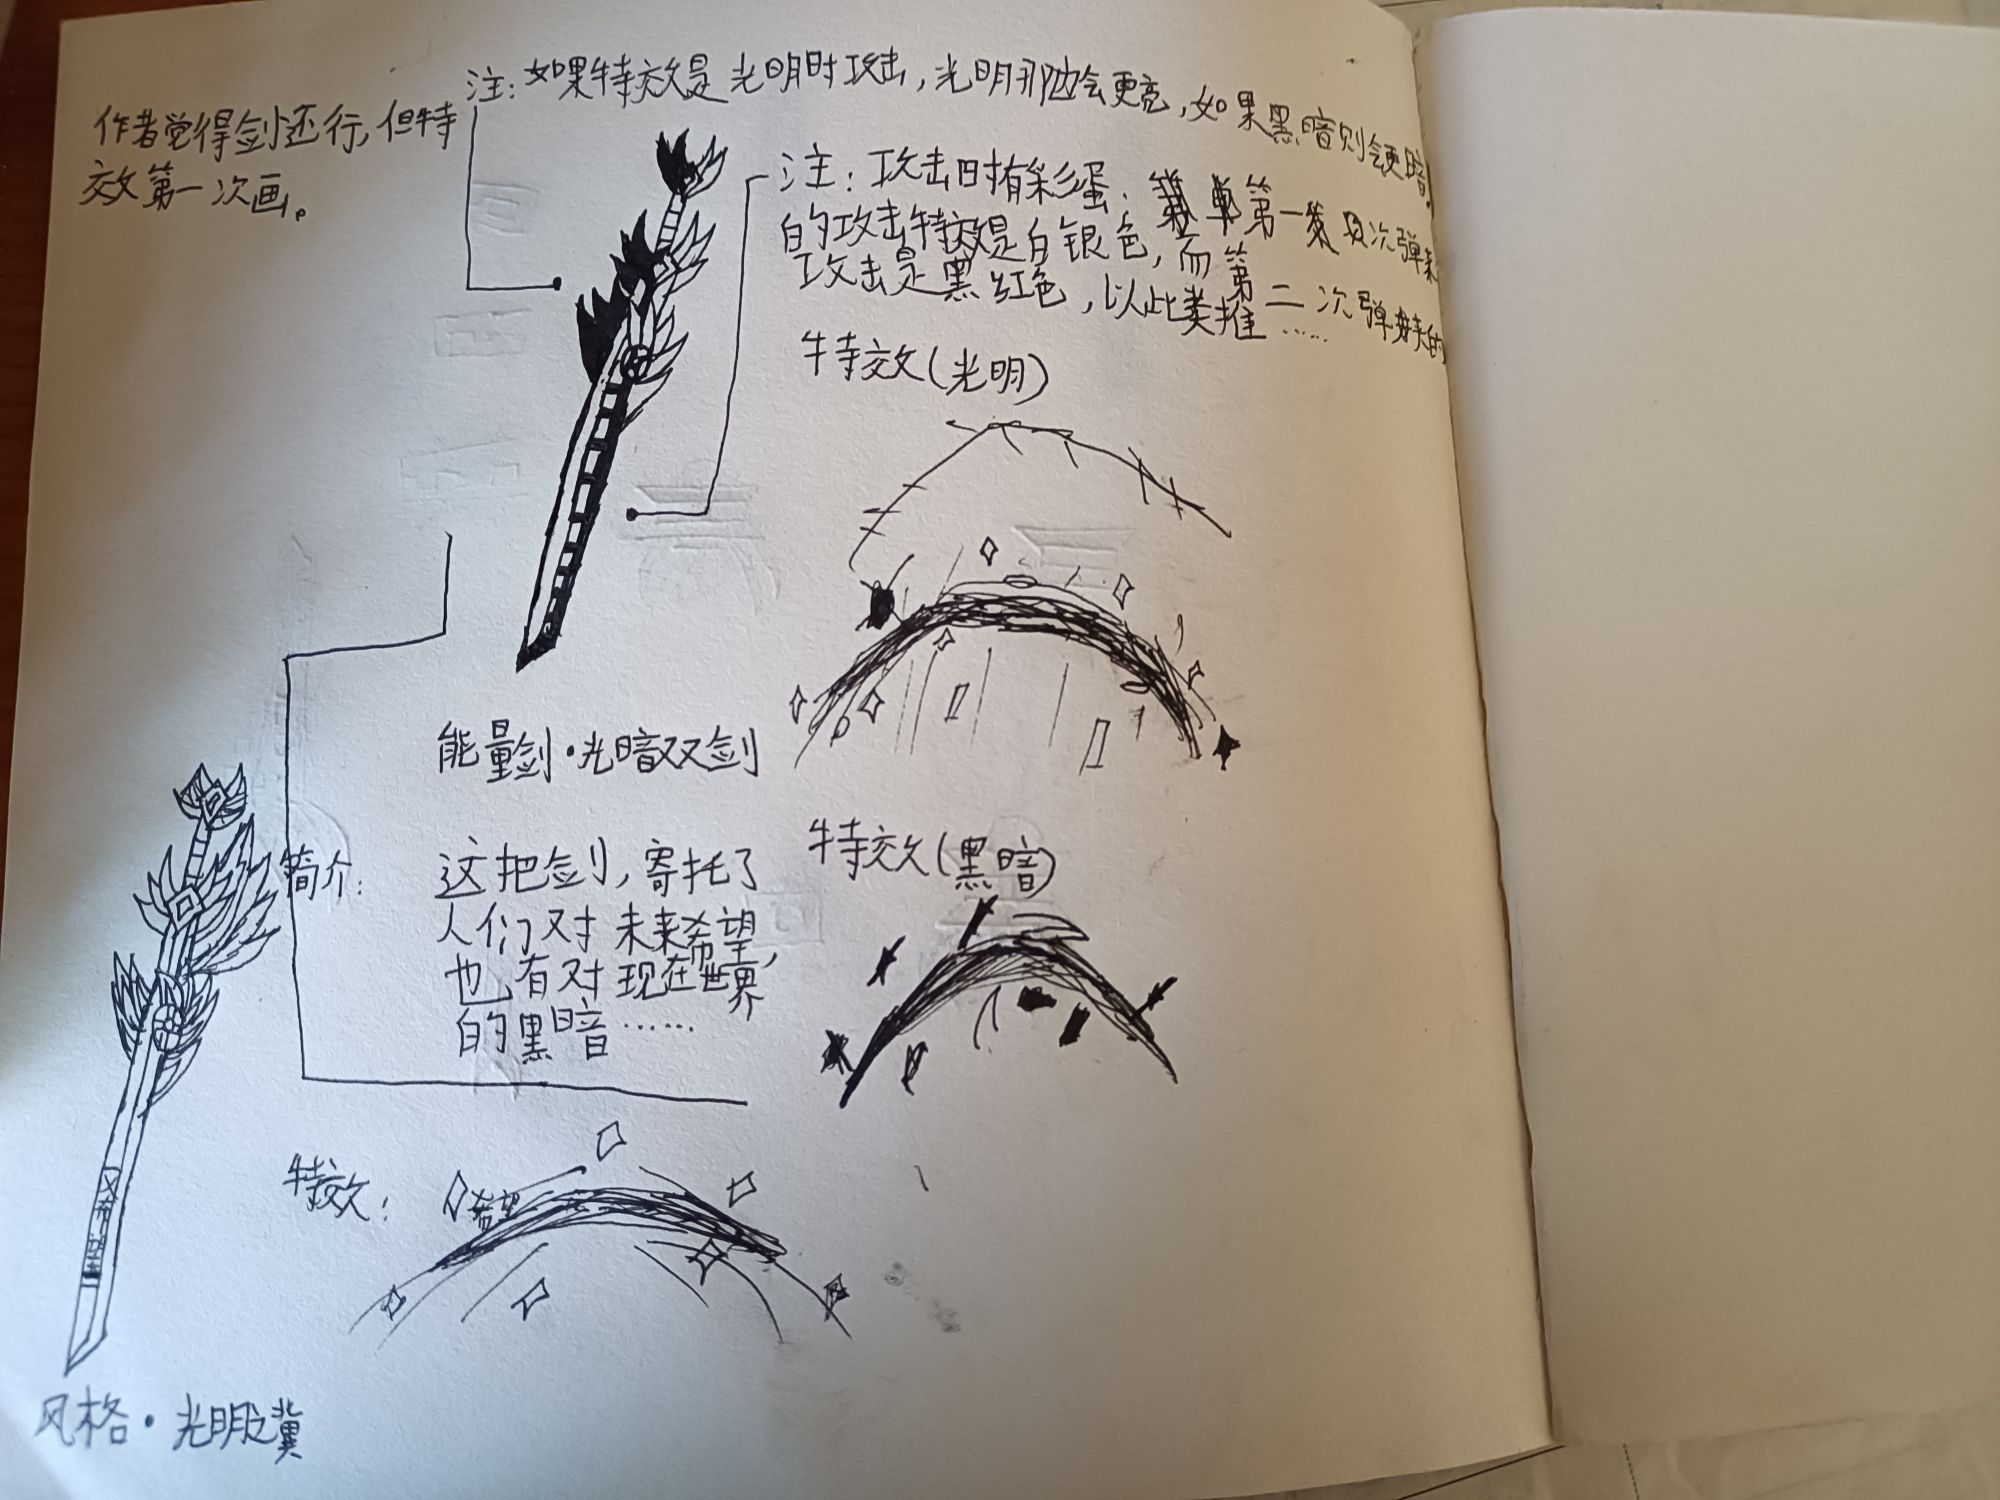 作者觉得剑还行，但特
效第一次画。
注：如果特效是光明时攻击，光明那边会更亮，如果黑暗则会更暗。
注：攻击时有彩蛋：第一次弹
的攻击特效是白银色，而第二次弹的
攻击是黑红色，以此类推……
特效（光明）
能量剑·光暗双剑
简介：
这把剑，寄托了
人们对未来希望，
也有对现在世界
的黑暗……
特效（黑暗）
特效：
希望
希望
风格·光明之翼